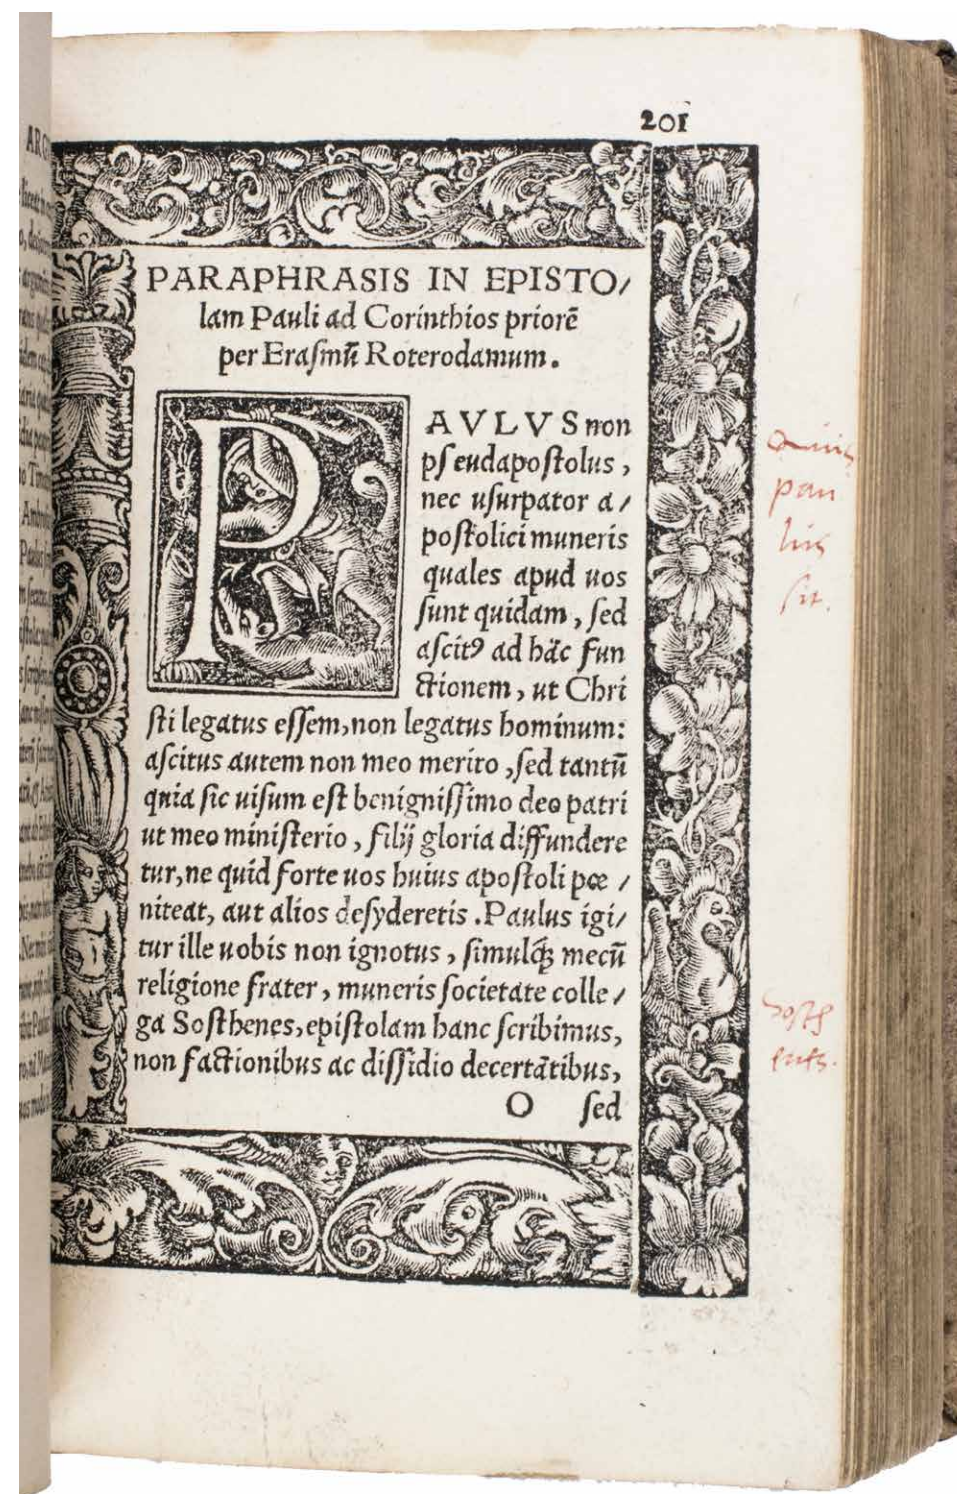 201
PARAPHRASIS IN EPISTO/
lam Pauli ad Corinthios priorē
per Eraſmū Roterodamum.
PAVLVS non
pſeudapoſtolus,
nec uſurpator a/
poſtolici muneris
quales apud uos
ſunt quidam, ſed
aſcitꝰ ad hāc fun
ctionem, ut Chri
ſti legatus eſſem, non legatus hominum:
aſcitus autem non meo merito, ſed tantū
quia ſic uiſum eſt benigniſſimo deo patri
ut meo miniſterio, filij gloria diffundere
tur, ne quid forte uos huius apoſtoli pœ/
niteat, aut alios deſyderetis. Paulus igi/
tur ille uobis non ignotus, ſimulq́ꝫ mecū
religione frater, muneris ſocietate colle/
ga Soſthenes, epiſtolam hanc ſcribimus,
non factionibus ac diſſidio decertātibus,
O ſed
Quis
pau
lus
ſit.
Soſth
enes.